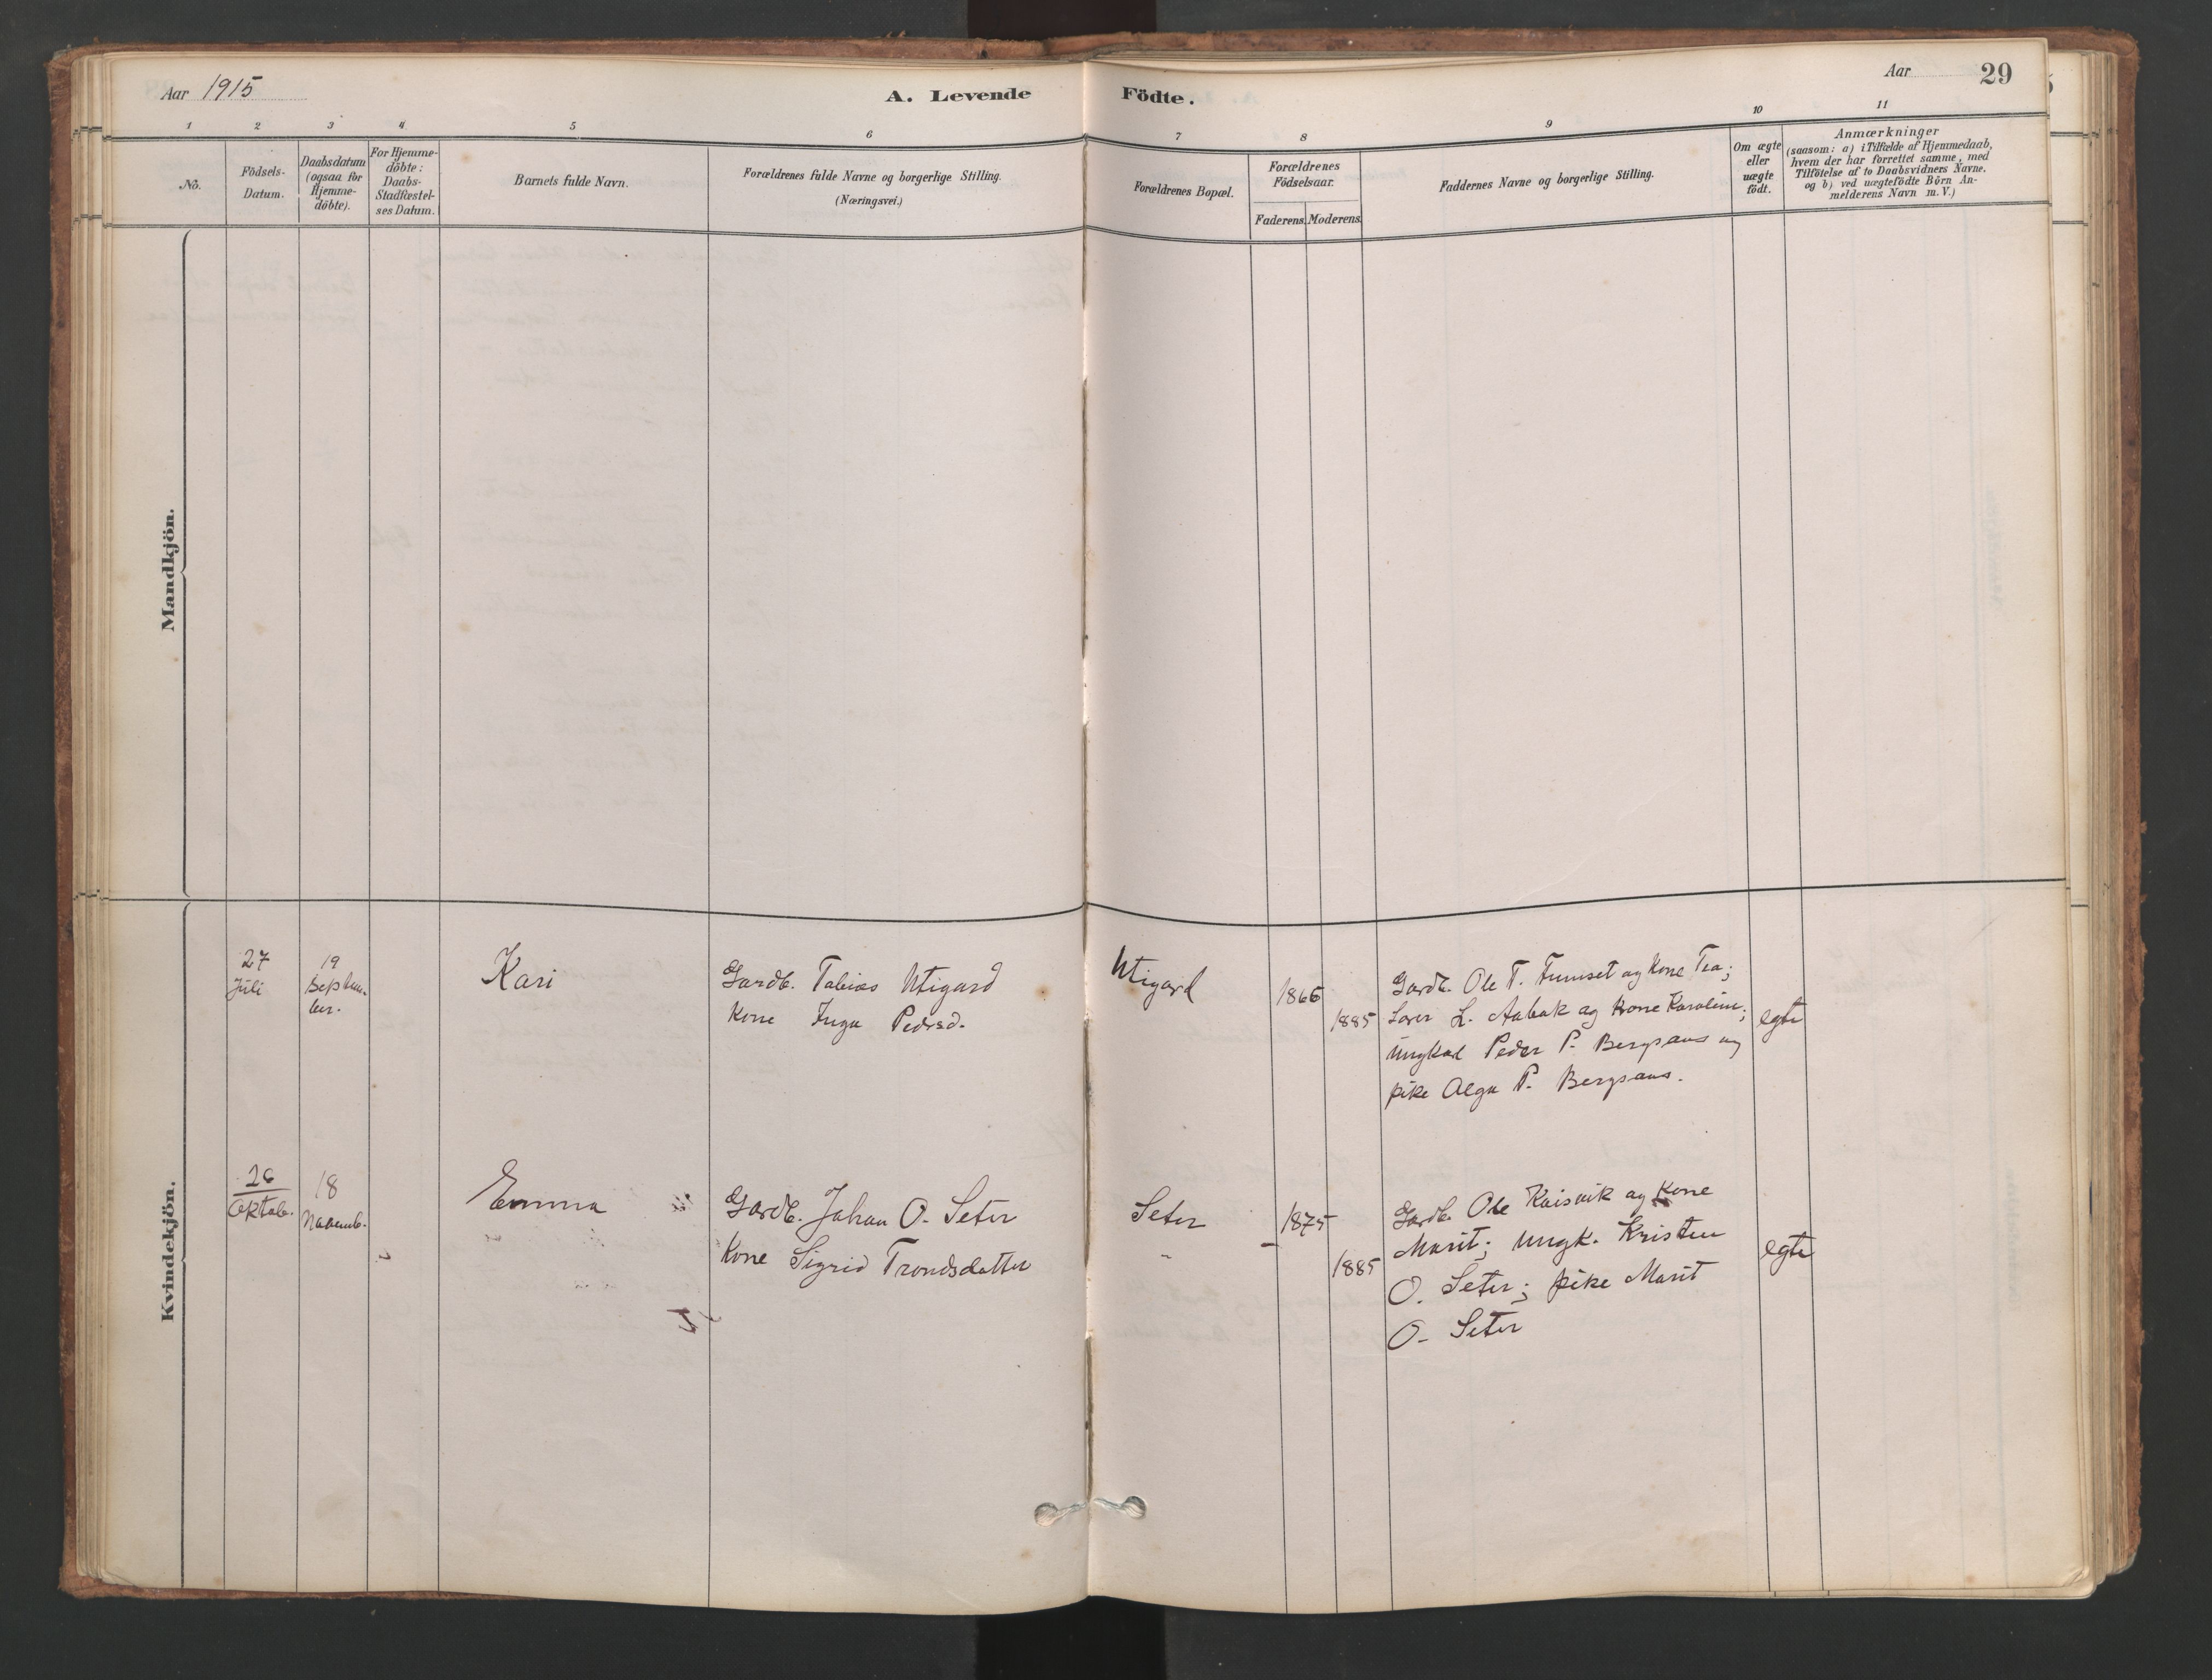 Aar 1915
A. Levende
Födte.
Aar
29
1 2 3 4 5 6 7 8 9 10 11
No.
Födsels-
Datum.
Daabsdatum
(ogsaa for
Hjemme-
döbte).
For Hjemme-
döbte:
Daabs-
Stadfæstel-
ses Datum.
Barnets fulde Navn.
Forældrenes fulde Navne og borgerlige Stilling.
(Næringsvei.)
Forældrenes Bopæl.
Forældrenes
Födselsaar.
Faderens. Moderens.
Faddernes Navne og borgerlige Stilling.
Om ægte
eller
uægte
födt.
Anmærkninger
(saasom: a) i Tilfælde af Hjemmedaab,
hvem der har forrettet samme, med
Tilföielse af to Daabsvidners Navne.
og b) ved uægtefödte Börn An-
melderens Navn m. V.)
Mandkjön.
Kvindekjön.
27
Juli
19
Septem-
ber.
Kari
Gardb. Tobias Utigard
Kone Inga Pedersd.
Utigard
1866
1885
Gardb. Ole T. Fumset og Kone Tea;
Lars L. Aabak og Kone Karoline;
ungkad Peder P. Bergsaas og
pike Olga P. Bergsaas.
egte
26
Oktob.
18
Novemb.
Emma
Gardb. Johan O. Seter
Kone Sigrid Trondsdatter
Seter
"
1875
1885
Gardb. Ole Roisvik og Kone
Marit; ungk. Kristen
O. Seter; pike Marit
O. Seter
egte